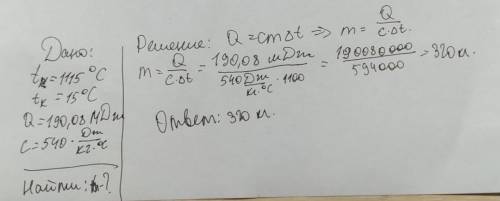 Дано:
tк = 1115 °C
tк = 15 °C
Q = 190,08 МДж
c = 540 · Дж/кг·°C
Найти: m-?
Решение: Q = cmΔt => m = Q/c·Δt
m = Q/c·Δt = 190,08 мДж/540 Дж/кг·°C · 1100 = 190080000/594000 = 320 кг.
Ответ: 320 кг.